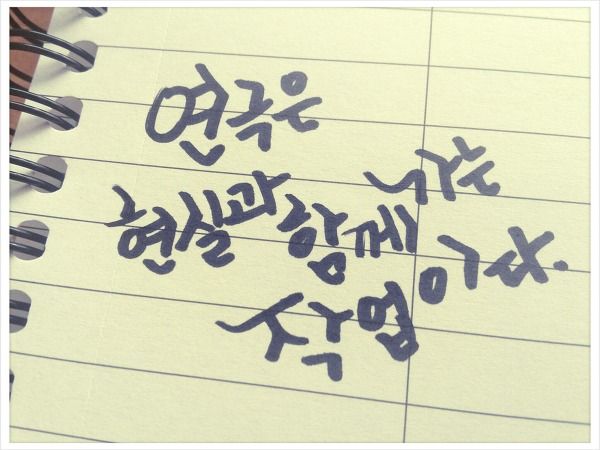 연극은
현실과 함께 가는
작업이다.